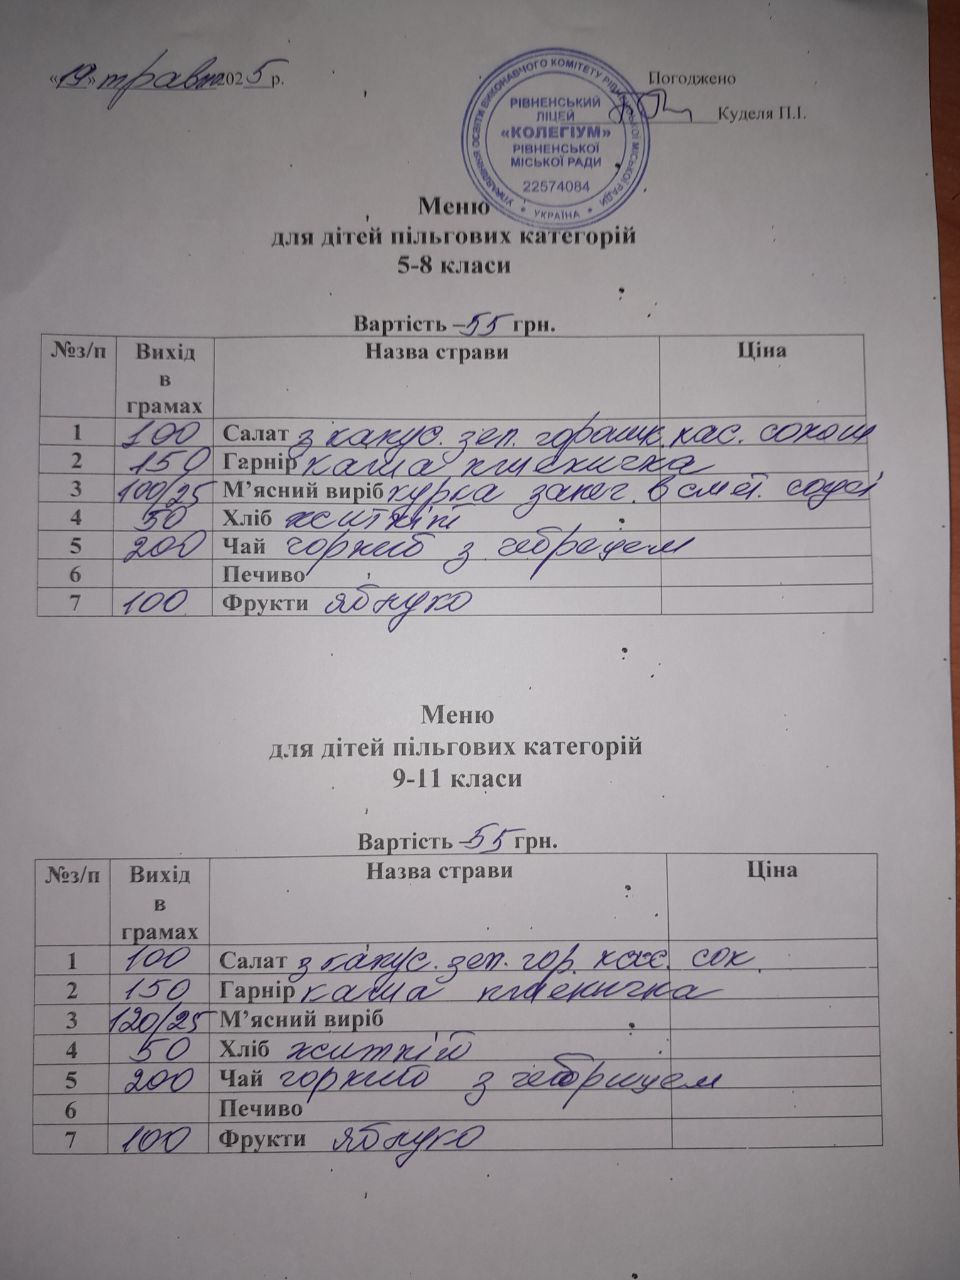 «19» травня 2025 р.
Погоджено
Куделя П.І.
УПРАВЛІННЯ ОСВІТИ ВИКОНАВЧОГО КОМІТЕТУ РІВНЕНСЬКОЇ МІСЬКОЇ РАДИ
РІВНЕНСЬКИЙ
ЛІЦЕЙ
«КОЛЕГІУМ»
РІВНЕНСЬКОЇ
МІСЬКОЇ РАДИ
22574084
* УКРАЇНА *
Меню
для дітей пільгових категорій
5-8 класи
Вартість – 55 грн.
№з/п Вихід в грамах Назва страви Ціна
1 100 Салат з капус. зел. горошк. кас. сокош
2 150 Гарнір каша пшенична
3 100/25 М’ясний виріб курка запеч. в смет. соусі
4 50 Хліб житній
5 200 Чай чорний з чебрецем
6 Печиво
7 100 Фрукти яблуко
Меню
для дітей пільгових категорій
9-11 класи
Вартість – 55 грн.
№з/п Вихід в грамах Назва страви Ціна
1 100 Салат з капус. зел. гор. сок
2 150 Гарнір каша пшенична
3 120/25 М’ясний виріб
4 50 Хліб житній
5 200 Чай чорний з чебрецем
6 Печиво
7 100 Фрукти яблуко